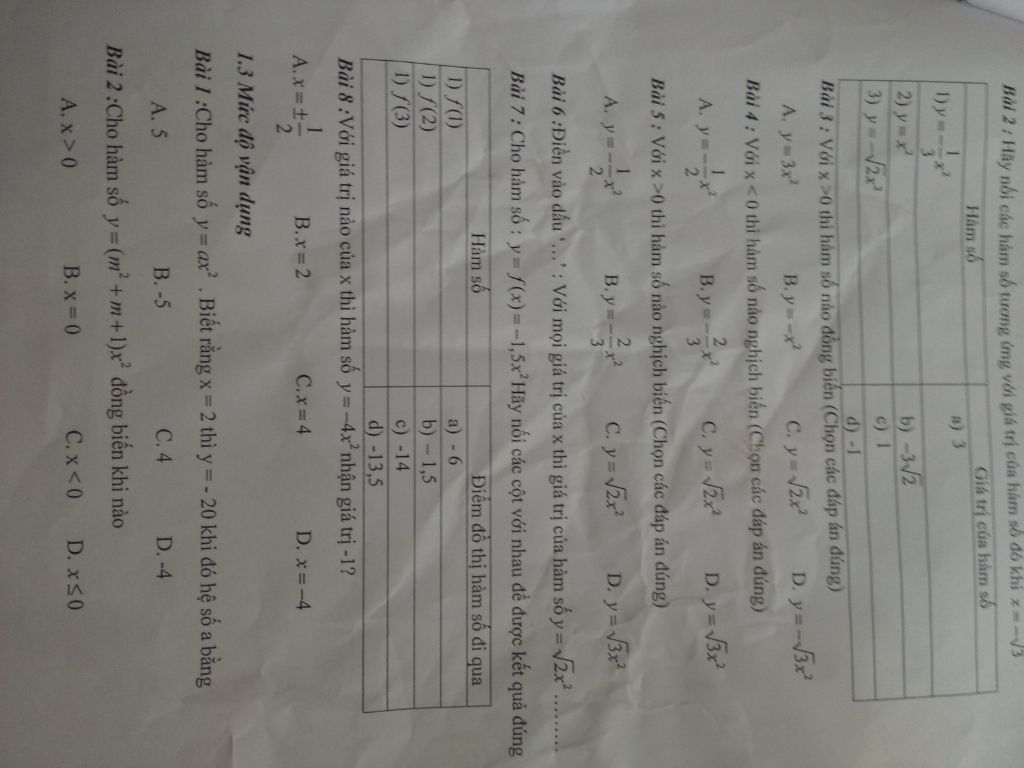 Bài 2 : Hãy nối các hàm số tương ứng với giá trị của hàm số đó khi x = −√3
Hàm số Giá trị của hàm số
1) y = −1/3 x² a) 3
2) y = x² b) −3√2
3) y = −√2x² c) 1
d) -1
Bài 3 : Với x >0 thì hàm số nào đồng biến (Chọn các đáp án đúng)
A. y = 3x² B. y = −x² C. y = √2x² D. y = −√3x²
Bài 4 : Với x < 0 thì hàm số nào nghịch biến (Chọn các đáp án đúng)
A. y = −1/2 x² B. y = −2/3 x² C. y = √2x² D. y = √3x²
Bài 5 : Với x >0 thì hàm số nào nghịch biến (Chọn các đáp án đúng)
A. y = −1/2 x² B. y = −2/3 x² C. y = √2x² D. y = √3x²
Bài 6 :Điền vào dấu ‘…’ : Với mọi giá trị của x thì giá trị của hàm số y = √2x² ………
Bài 7 : Cho hàm số : y = f(x) = −1,5x² Hãy nối các cột với nhau để được kết quả đúng
Hàm số Điểm đồ thị hàm số đi qua
1) f(1) a) - 6
1) f(2) b) – 1,5
1) f(3) c) -14
d) -13,5
Bài 8 :Với giá trị nào của x thì hàm số y = −4x² nhận giá trị -1?
A. x = ±1/2 B. x = 2 C. x = 4 D. x = −4
1.3 Mức độ vận dụng
Bài 1 :Cho hàm số y = ax² . Biết rằng x = 2 thì y = - 20 khi đó hệ số a bằng
A. 5 B. -5 C. 4 D. -4
Bài 2 :Cho hàm số y = (m² + m + 1)x² đồng biến khi nào
A. x > 0 B. x = 0 C. x < 0 D. x ≤ 0